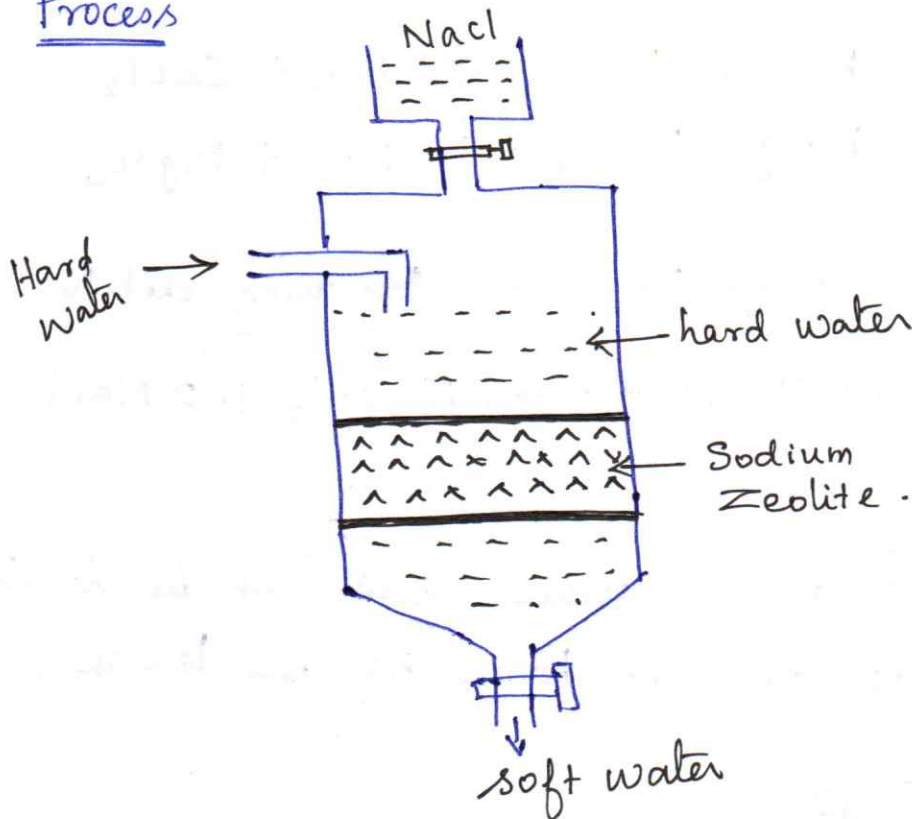 Process
Nacl
Hard
water
hard water
Sodium
Zeolite.
soft water